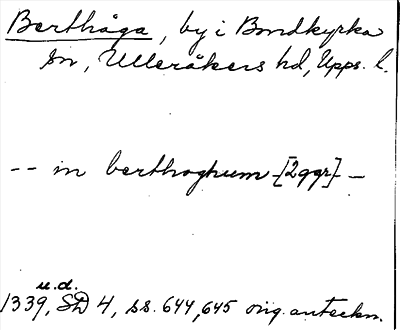 Berthåga, by i Bondkyrka
sn, Ulleråkers hd, Upps. l.
-- in berthoghum [2ggr] --
u.d.
1339, SD 4, ss. 644, 645 orig. anteckn.